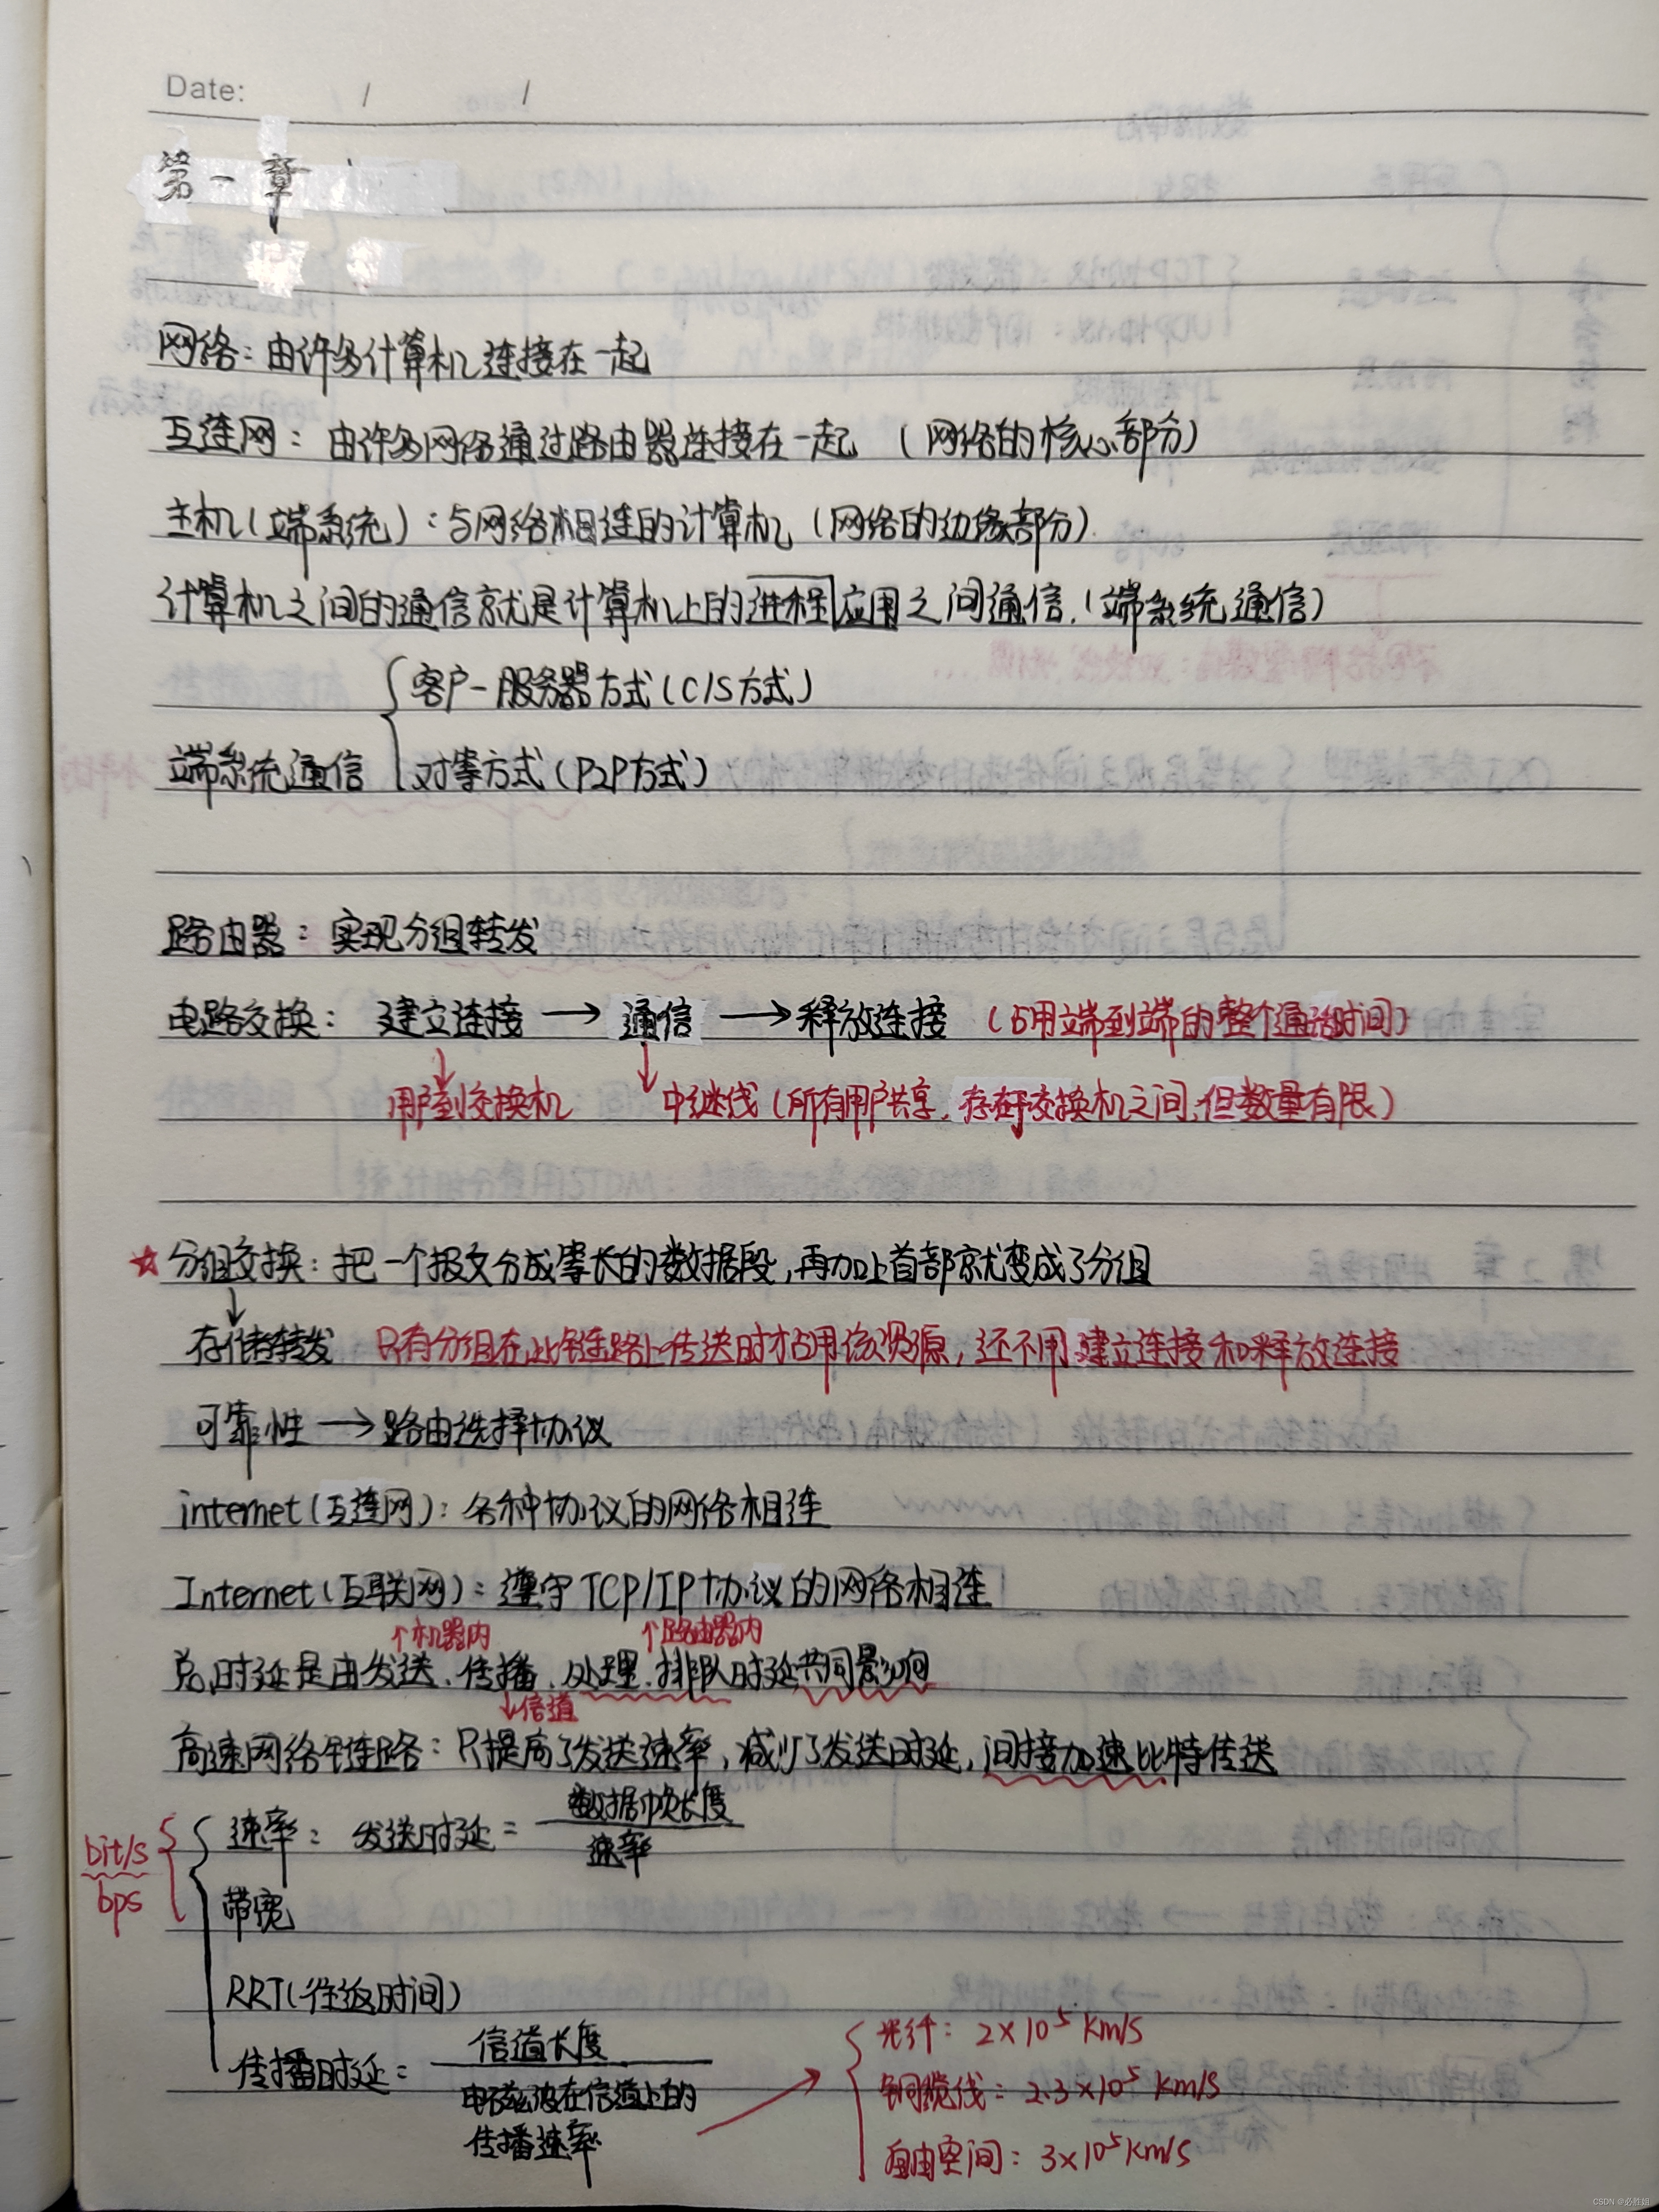 Date: / /
第一章
网络：由许多计算机连接在一起
互连网：由许多网络通过路由器连接在一起 （网络的核心部分）
主机（端系统）：与网络相连的计算机（网络的边缘部分）.
计算机之间的通信就是计算机上的进程应用之间通信.（端系统通信）
客户-服务器方式（C/S方式）
端系统通信
对等方式（P2P方式）
路由器：实现分组转发
电路交换： 建立连接 → 通信 → 释放连接 （占用端到端的整个通话时间）
用户到交换机 中继线（所有用户共享，存在于交换机之间，但数量有限）
☆分组交换：把一个报文分成等长的数据段，再加上首部就变成了分组
存储转发 只有分组在此链路上传送时才占用该资源，还不用建立连接和释放连接
可靠性 → 路由选择协议
internet（互连网）：各种协议的网络相连
Internet（互联网）：遵守TCP/IP协议的网络相连
↑机器内 ↑路由器内
总时延是由发送、传播、处理、排队时延共同影响
↓信道
高速网络链路：只提高了发送速率，减少了发送时延，间接加速比特传送
bit/s
bps
速率： 发送时延 = 数据帧长度
速率
带宽
RRT（往返时间）
传播时延 = 信道长度
电磁波在信道上的
传播速率
光纤： 2×10⁵ km/s
铜缆线： 2.3×10⁵ km/s
自由空间： 3×10⁵ km/s
CSDN @必胜姐